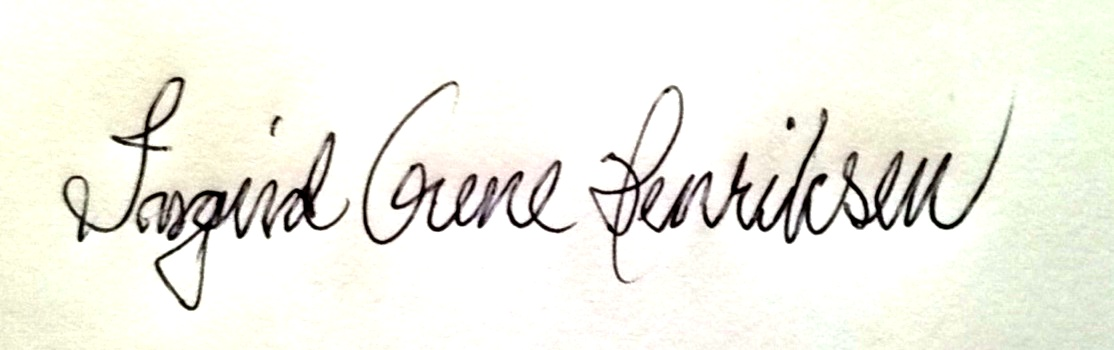 Ingrid Crene Henriksen